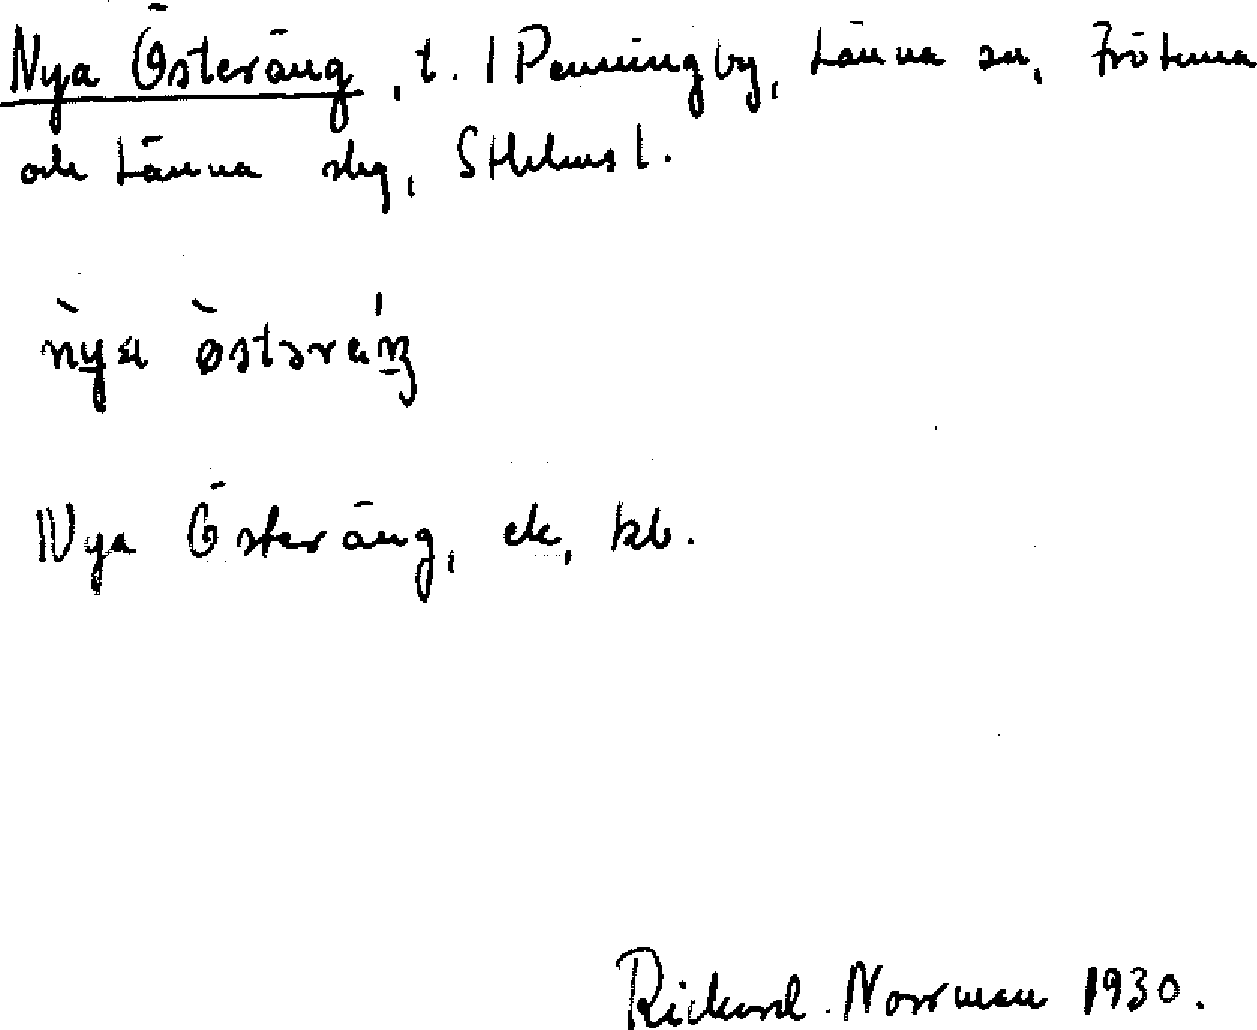 Nya Österäng, t. 1 Penningby, Länna sn, Frötuna
och Länna slg, Sthlms l.
nya østəräŋ
Nya Österäng, ek, kb.
Rickard Norrman 1930.